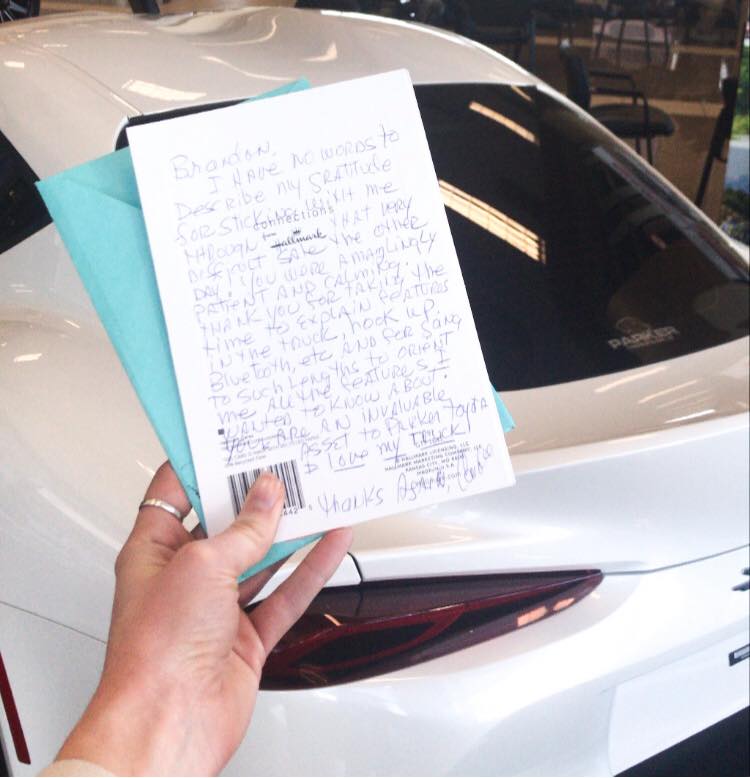 Brandon,
I HAVE NO WORDS to
Describe my GRATITUDE
FOR STICKING WITH ME
connections
from
Hallmark
THROUGH THAT VERY
DIFFICULT SALE THE OTHER
DAY. YOU WERE AMAZINGLY
PATIENT AND CALMING.
THANK YOU FOR TAKING THE
TIME TO EXPLAIN FEATURES
IN THE TRUCK, HOOK UP
BLUETOOTH, etc AND FOR GOING
TO SUCH LENGTHS TO ORIENT
me ALL THE FEATURES I
WANTED TO KNOW ABOUT.
YOU ARE AN INVALUABLE
ASSET to PARKER TOYOTA
I LOVE my TRUCK!
HALLMARK LICENSING, LLC
HALLMARK MARKETING COMPANY, LLC
KANSAS CITY, MO
thanks Again,
PARKER